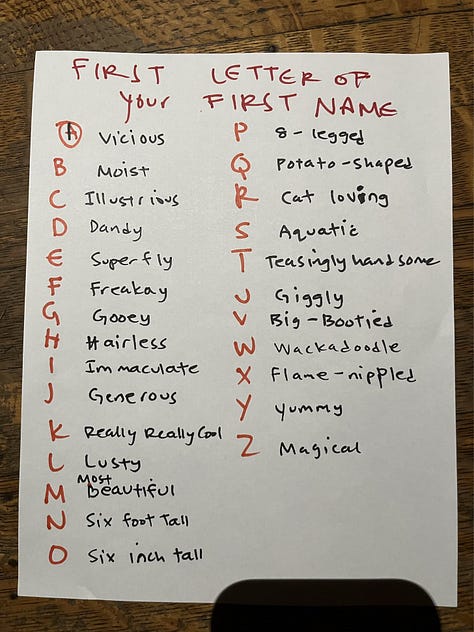 FIRST LETTER OF
YOUR FIRST NAME
A Vicious
B Moist
C Illustrious
D Dandy
E Superfly
F Freakay
G Gooey
H Hairless
I Immaculate
J Generous
K Really Really Cool
L Lusty
M Most Beautiful
N Six foot Tall
O Six inch tall
P 8-legged
Q Potato-shaped
R Cat loving
S Aquatic
T Teasingly handsome
U Giggly
V Big-Bootied
W Wackadoodle
X Flame-nippled
Y Yummy
Z Magical